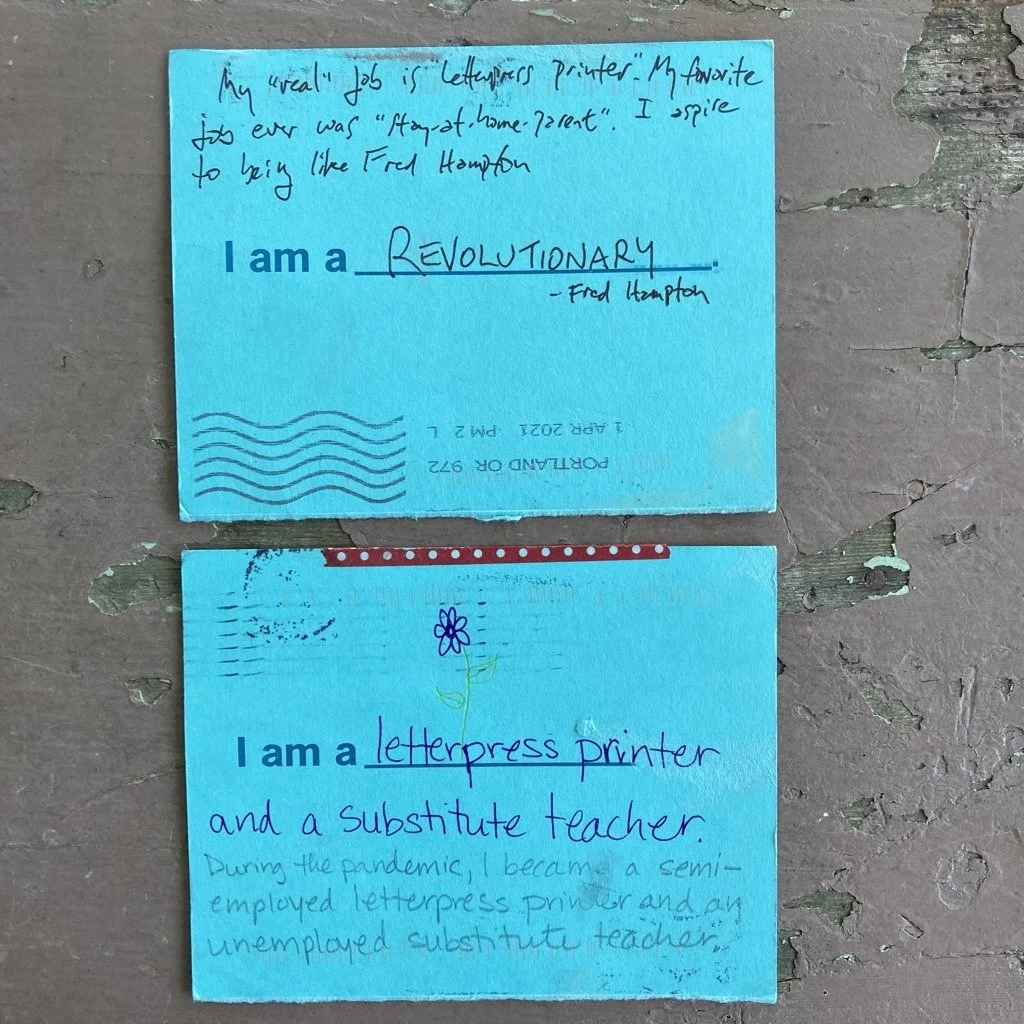 My "real" job is "letterpress printer." My favorite
job ever was "stay-at-home-parent". I aspire
to being like Fred Hampton
I am a REVOLUTIONARY.
- Fred Hampton
1 APR 2021 PM 2 L
PORTLAND OR 972
I am a letterpress printer
and a substitute teacher.
During the pandemic, I became a semi-
employed letterpress printer and an
unemployed substitute teacher.